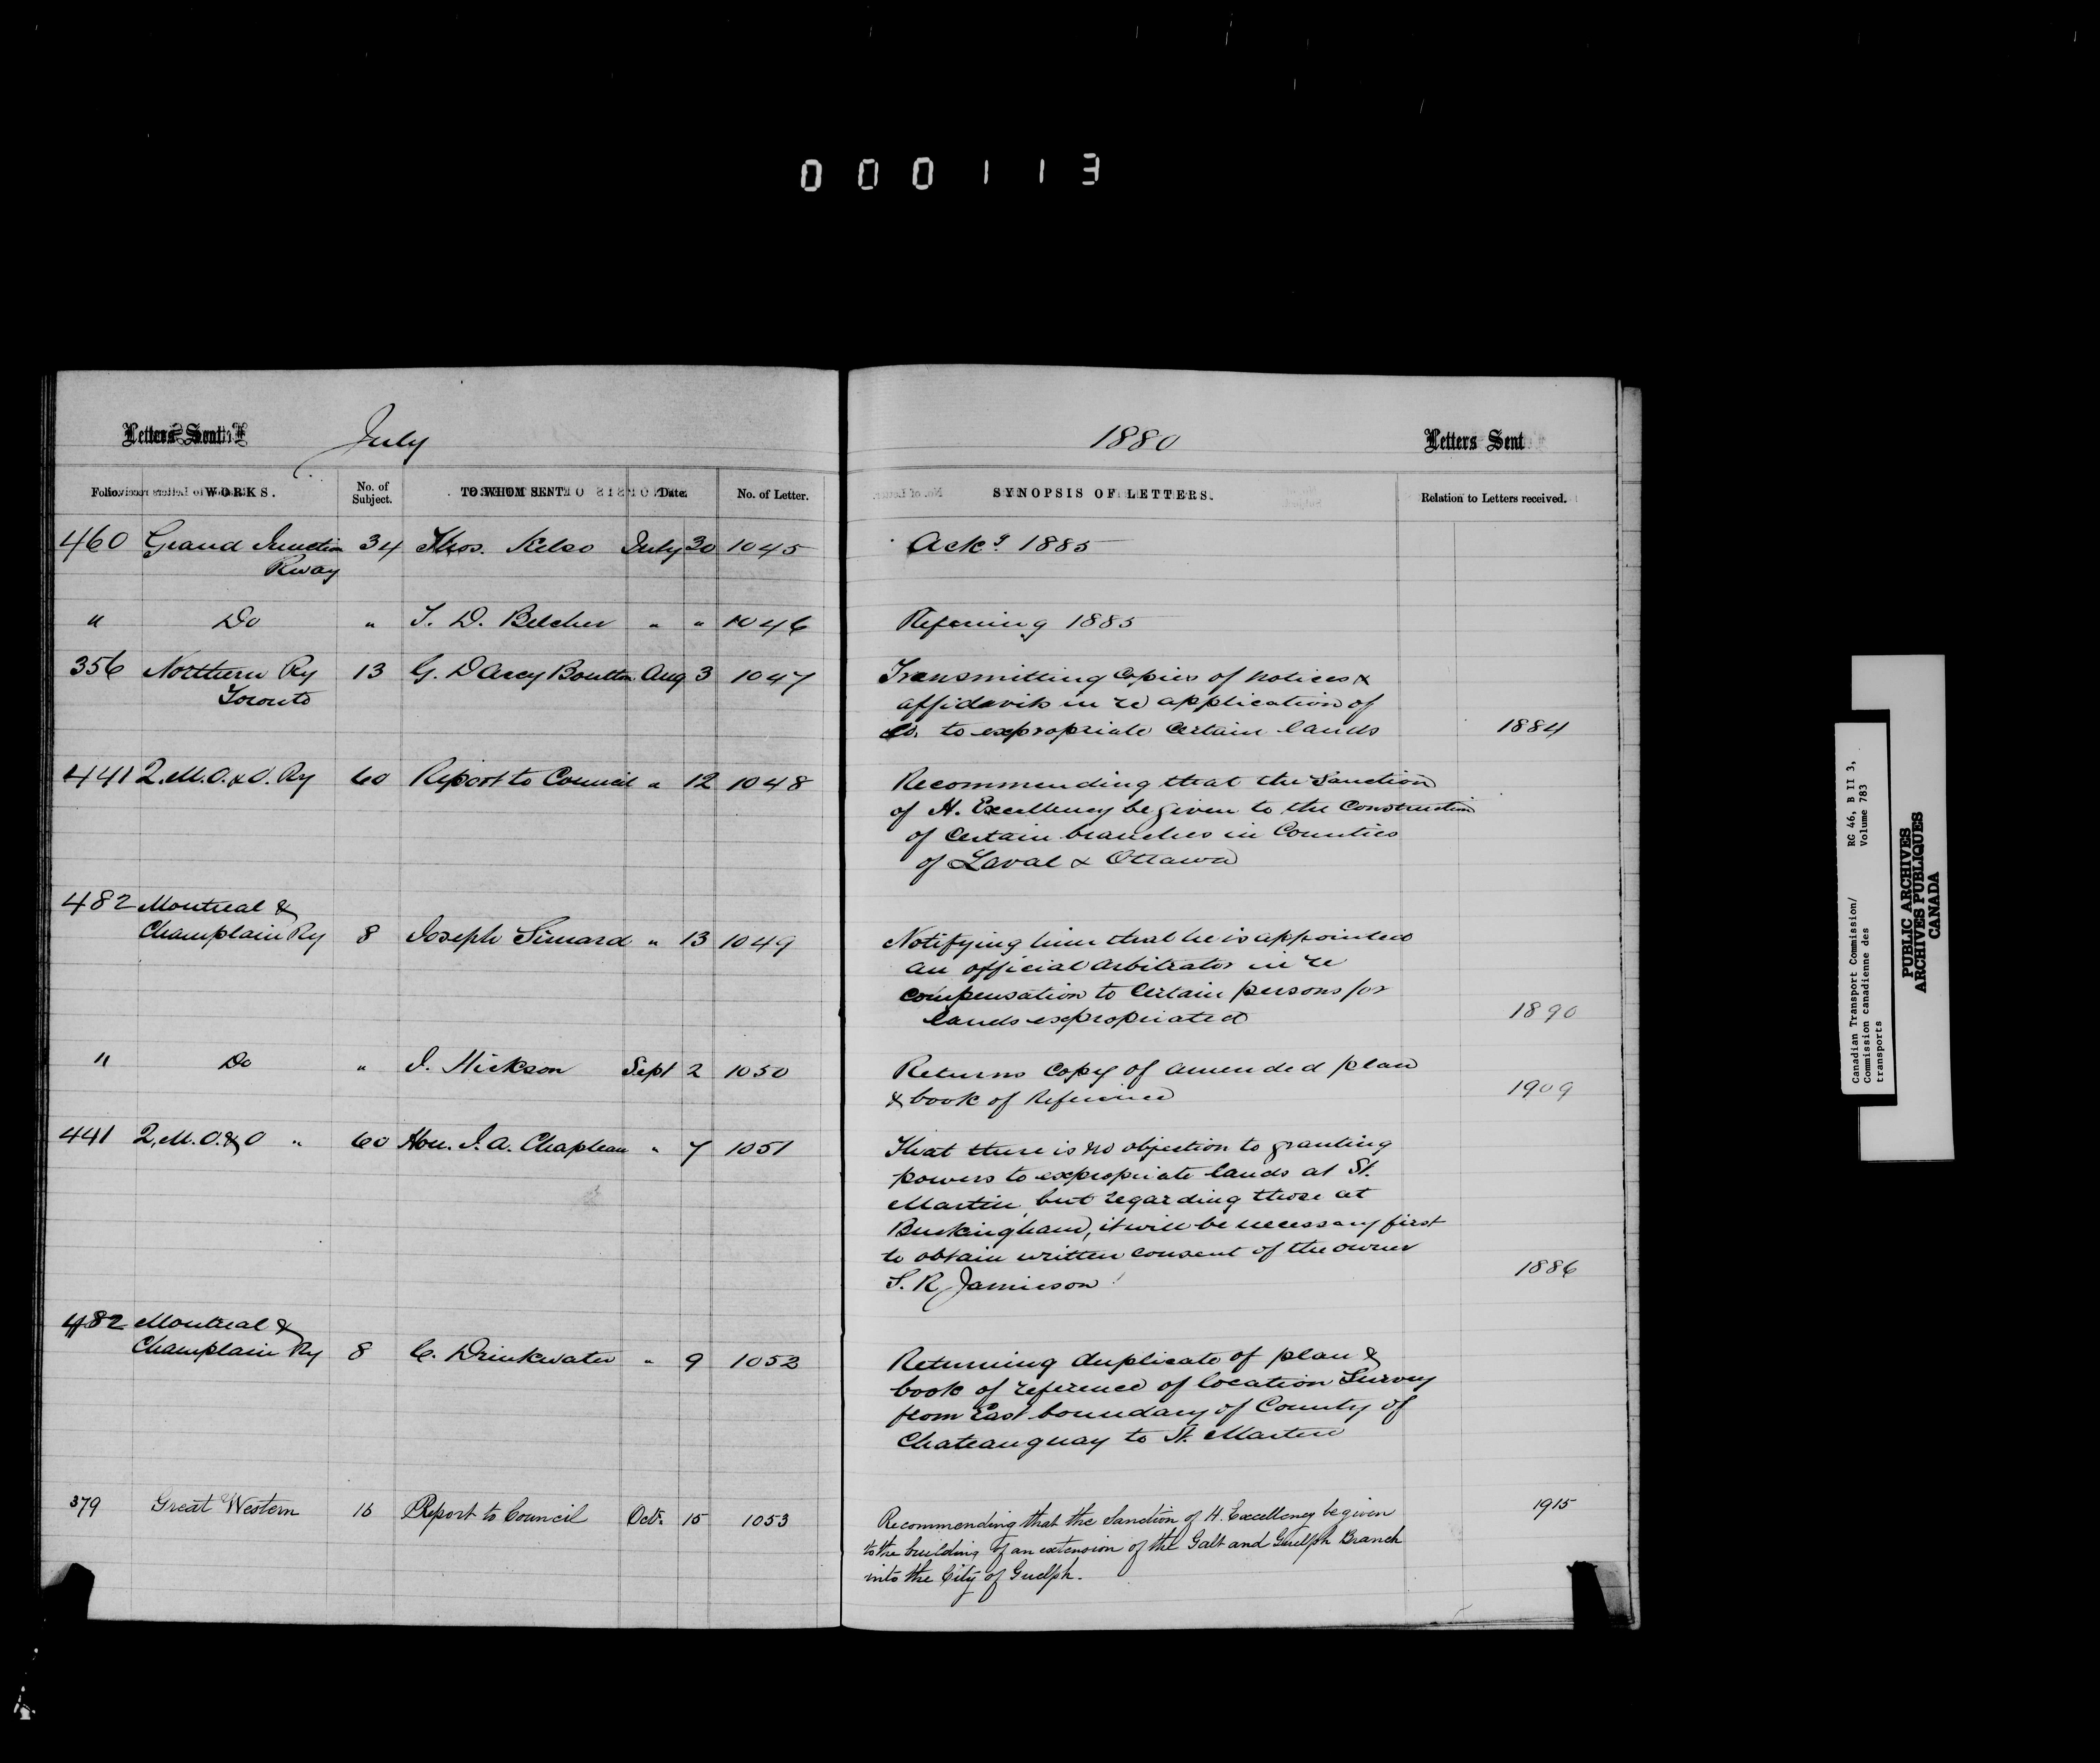 000113
Letters Sent
July
1880
Letters Sent
Folio.
WORKS.
No. of Subject.
TO WHOM SENT.
Date.
No. of Letter.
SYNOPSIS OF LETTERS.
Relation to Letters received.
460 Grand Junction 34 Thos. Kelso July 30 1045 Ackg 1885
Rway
" Do " T. D. Belcher " " 1046 Referring 1885
356 Northern Ry 13 G. D'Arcy Boulton Aug 3 1047 Transmitting Copies of notices &
Toronto affidavits in re application of
Co. to expropriate certain lands 1884
441 Q.M.O.&O. Ry 60 Report to Council " 12 1048 Recommending that the Sanction
of H. Excellency be given to the Construction
of Certain branches in Counties
of Laval & Ottawa
482 Montreal &
Champlain Ry 8 Joseph Simard " 13 1049 Notifying him that he is appointed
an official arbitrator in re
compensation to Certain persons for
lands expropriated 1890
" Do " J. Hickson Sept 2 1050 Returns Copy of amended plan
& book of Reference 1909
441 Q.M.O.&O " 60 Hon. J. A. Chapleau " 7 1051 That there is no objection to granting
powers to expropriate lands at St.
Martin, but regarding those at
Buckingham, it will be necessary first
to obtain written consent of the owner
S. R. Jamieson 1886
482 Montreal &
Champlain Ry 8 C. Drinkwater " 9 1052 Returning duplicate of plan &
book of reference of location Survey
from East boundary of County of
Chateauguay to St. Martin
379 Great Western 16 Report to Council Oct. 15 1053 Recommending that the Sanction of H. Excellency be given 1915
to the building of an extension of the Galt and Guelph Branch
into the City of Guelph.
Canadian Transport Commission/ RG 46, B II 3,
Commission canadienne des Volume 783
transports
PUBLIC ARCHIVES
ARCHIVES PUBLIQUES
CANADA